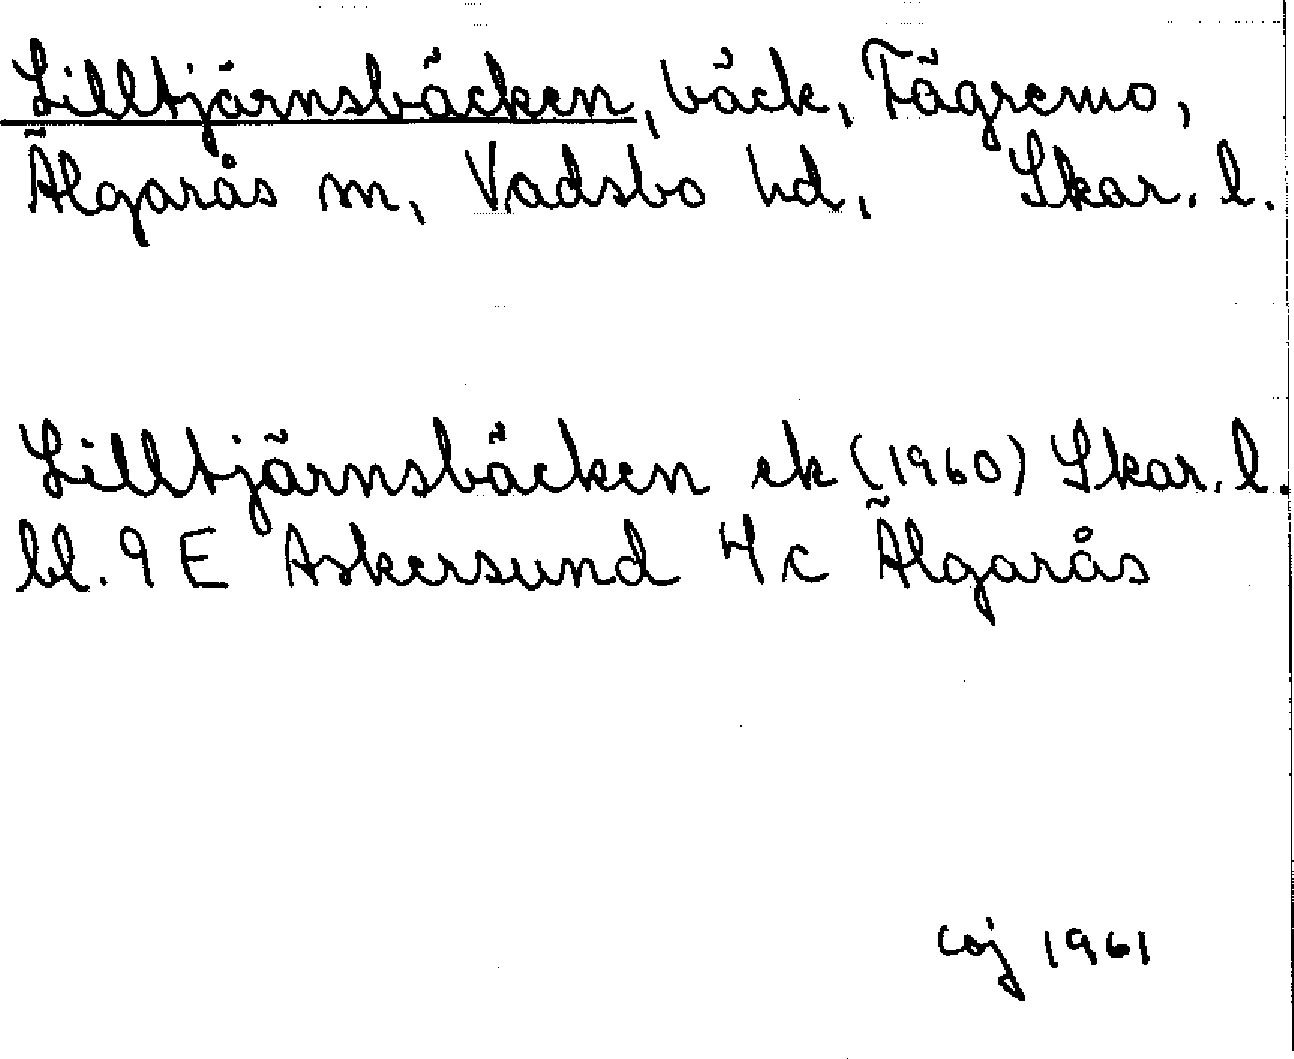 Lilltjärnsbäcken, bäck, Fägremo,
Älgarås sn, Vadsbo hd, Skar. l.
Lilltjärnsbäcken ek (1960) Skar. l.
bl. 9 E Askersund 4 c Älgarås
coj 1961